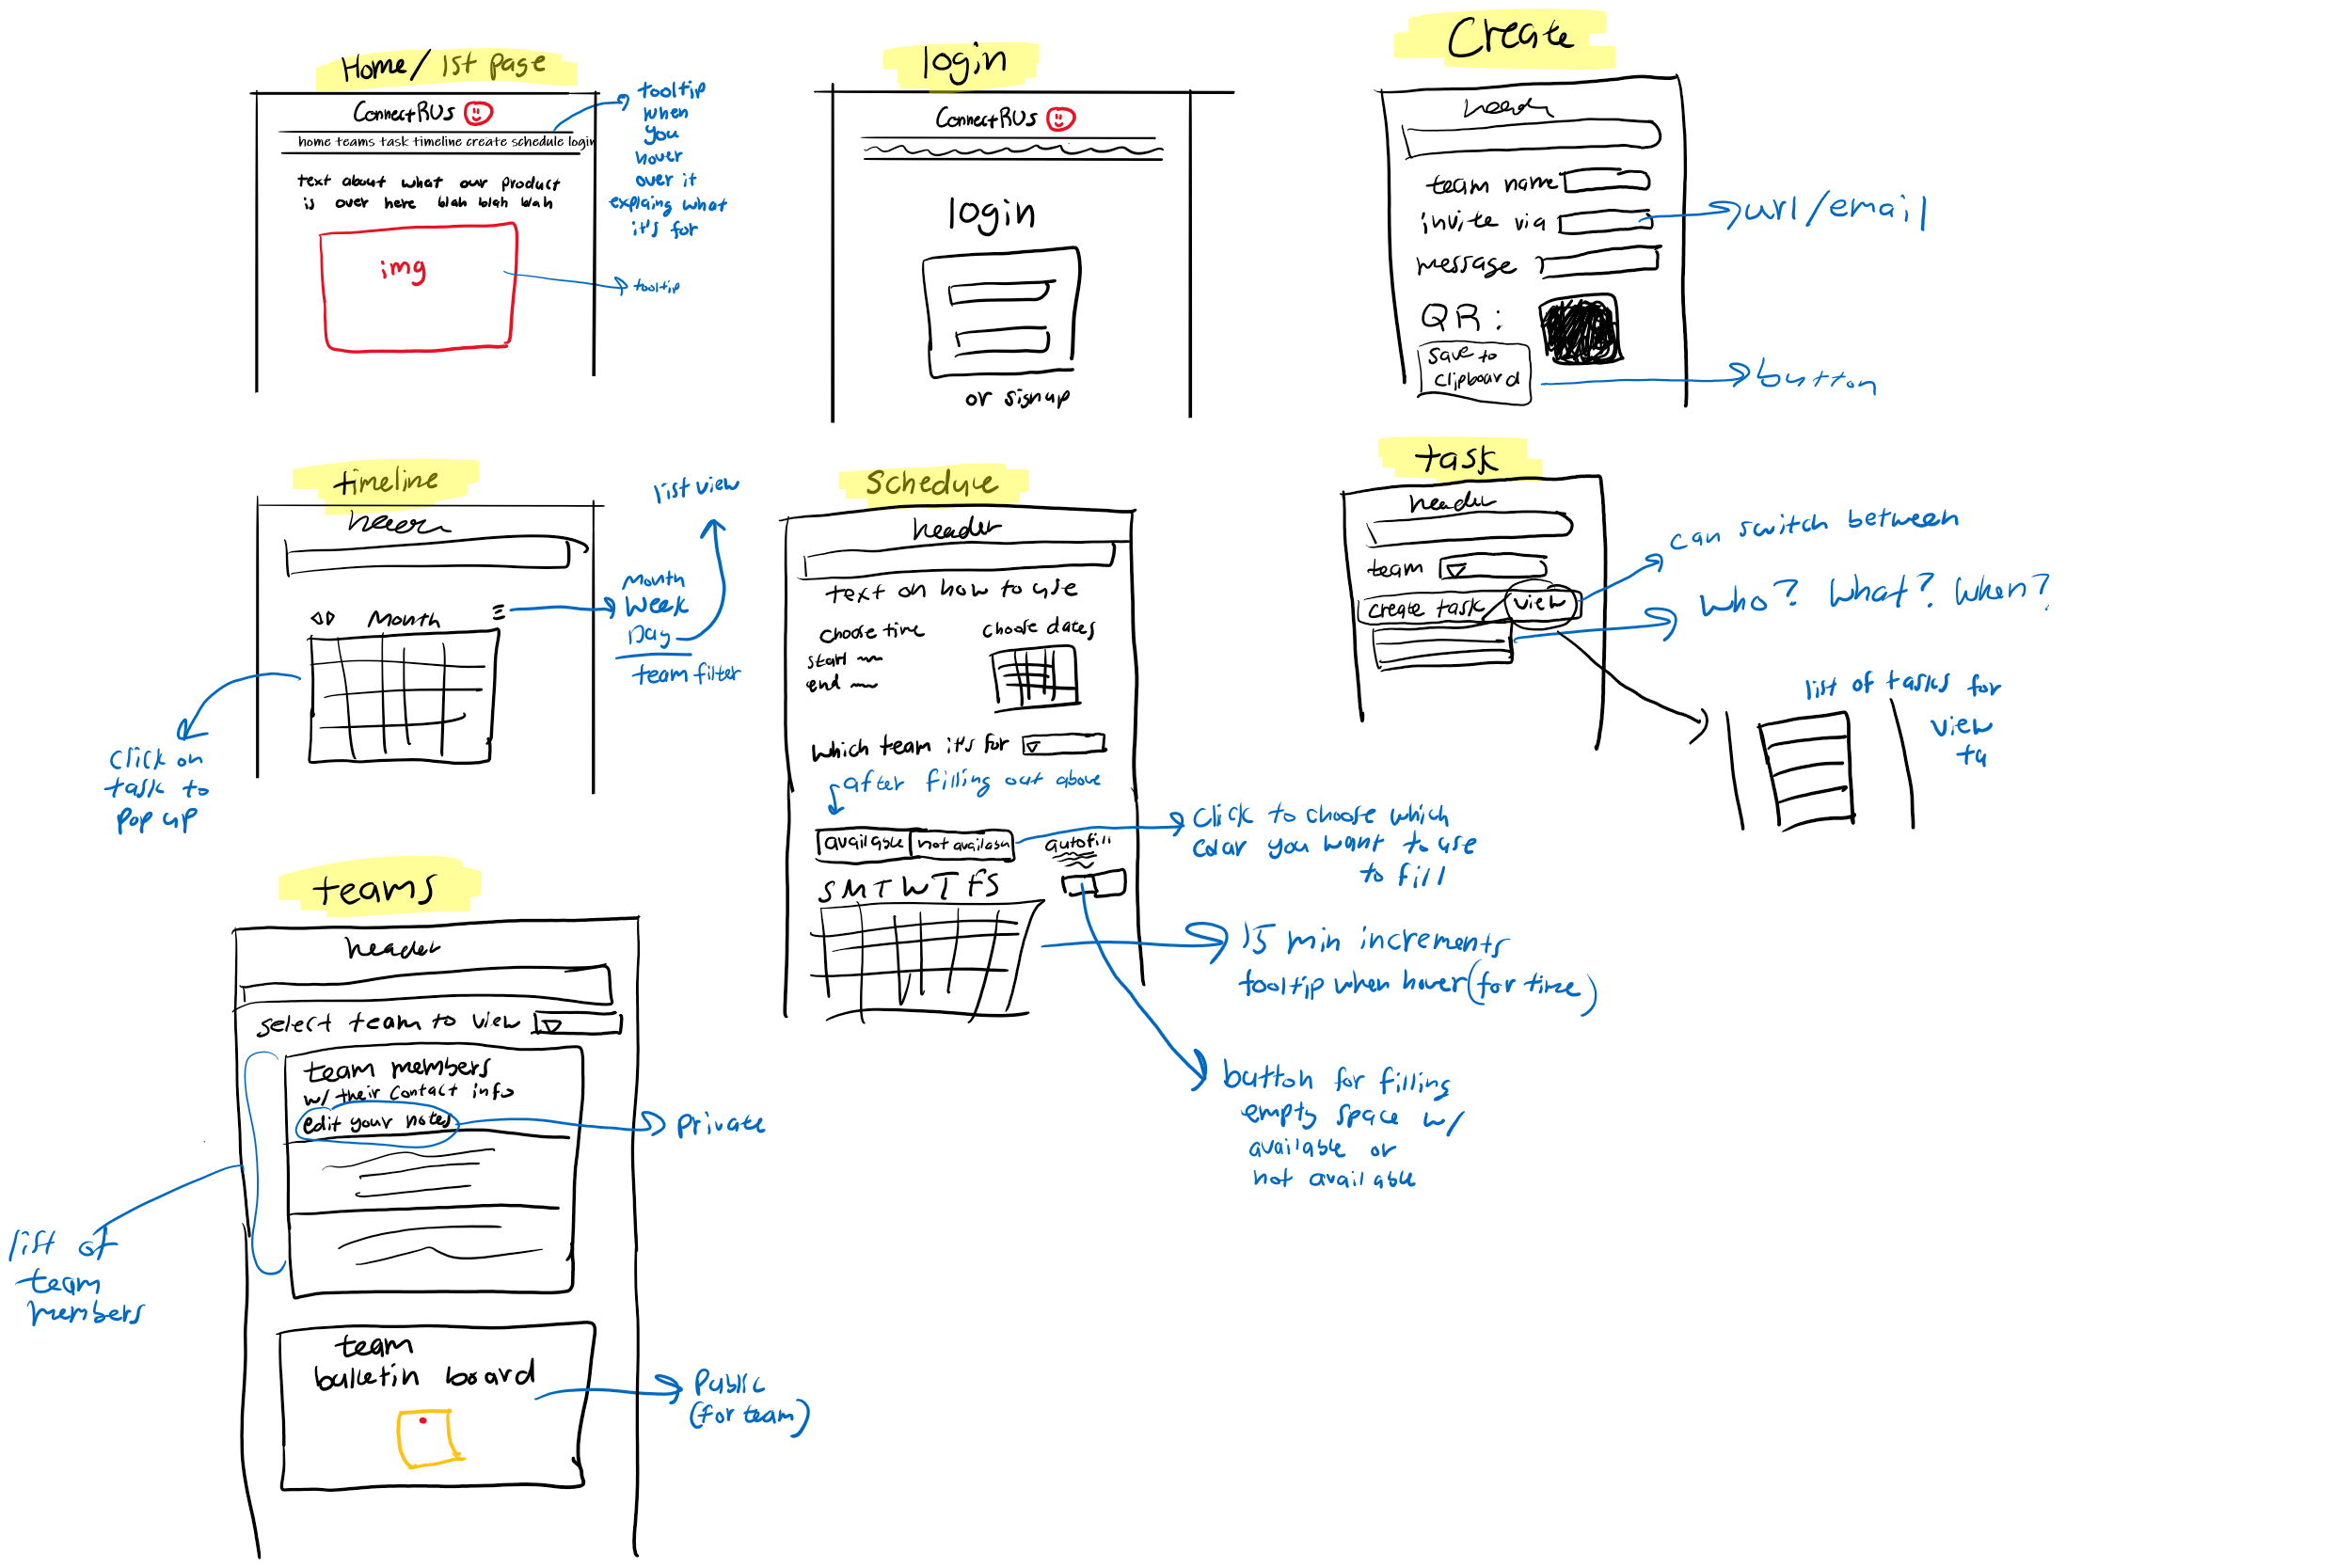 Home/ 1st page
ConnectRUs
home teams task timeline create schedule login
text about what our product
is over here blah blah blah
img
tooltip
when
you
hover
over it
explaing what
it's for
tooltip
login
ConnectRUs
login
or signup
Create
team name
invite via
message
QR:
save to
clipboard
url/email
button
timeline
Month
list view
Month
Week
Day
team filter
click on
task to
pop up
Schedule
header
text on how to use
choose time
choose dates
start
end
which team it's for
after filling out above
available
not available
autofill
S M T W T F S
click to choose which
color you want to use
to fill
15 min increments
tooltip when hover (for time)
button for filling
empty space w/
available or
not available
task
header
team
create task
view
can switch between
who? what? when?
list of tasks for
view
ta
teams
header
select team to view
team members
w/ their contact info
edit your notes
private
list of
team
members
team
bulletin board
Public
(for team)